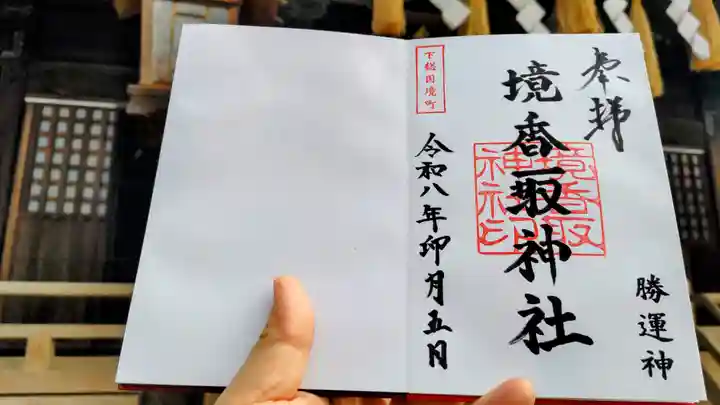 奉拝
境香取神社
勝運神
境香取
神社印
下総国境町
令和八年卯月五日